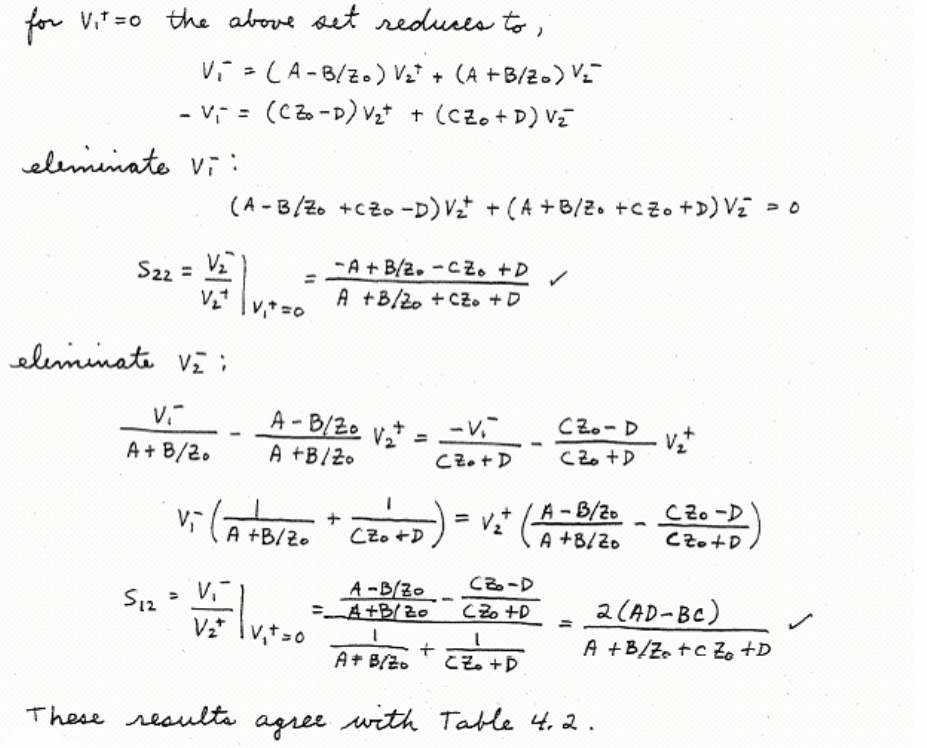 for V₁⁺=0 the above set reduces to,
V₁⁻ = (A-B/Z₀) V₂⁺ + (A+B/Z₀) V₂⁻
- V₁⁻ = (CZ₀-D) V₂⁺ + (CZ₀+D) V₂⁻
eleminate V₁⁻ :
(A-B/Z₀ +CZ₀-D) V₂⁺ + (A+B/Z₀ +CZ₀+D) V₂⁻ = 0
S₂₂ = V₂⁻/V₂⁺ |V₁⁺=0 = (-A+B/Z₀-CZ₀+D)/(A+B/Z₀+CZ₀+D) ✓
eleminate V₂⁻ ;
V₁⁻/(A+B/Z₀) - (A-B/Z₀)/(A+B/Z₀) V₂⁺ = -V₁⁻/(CZ₀+D) - (CZ₀-D)/(CZ₀+D) V₂⁺
V₁⁻ (1/(A+B/Z₀) + 1/(CZ₀+D)) = V₂⁺ ((A-B/Z₀)/(A+B/Z₀) - (CZ₀-D)/(CZ₀+D))
S₁₂ = V₁⁻/V₂⁺ |V₁⁺=0 = ((A-B/Z₀)/(A+B/Z₀) - (CZ₀-D)/(CZ₀+D))/(1/(A+B/Z₀) + 1/(CZ₀+D)) = 2(AD-BC)/(A+B/Z₀+CZ₀+D) ✓
These results agree with Table 4.2.